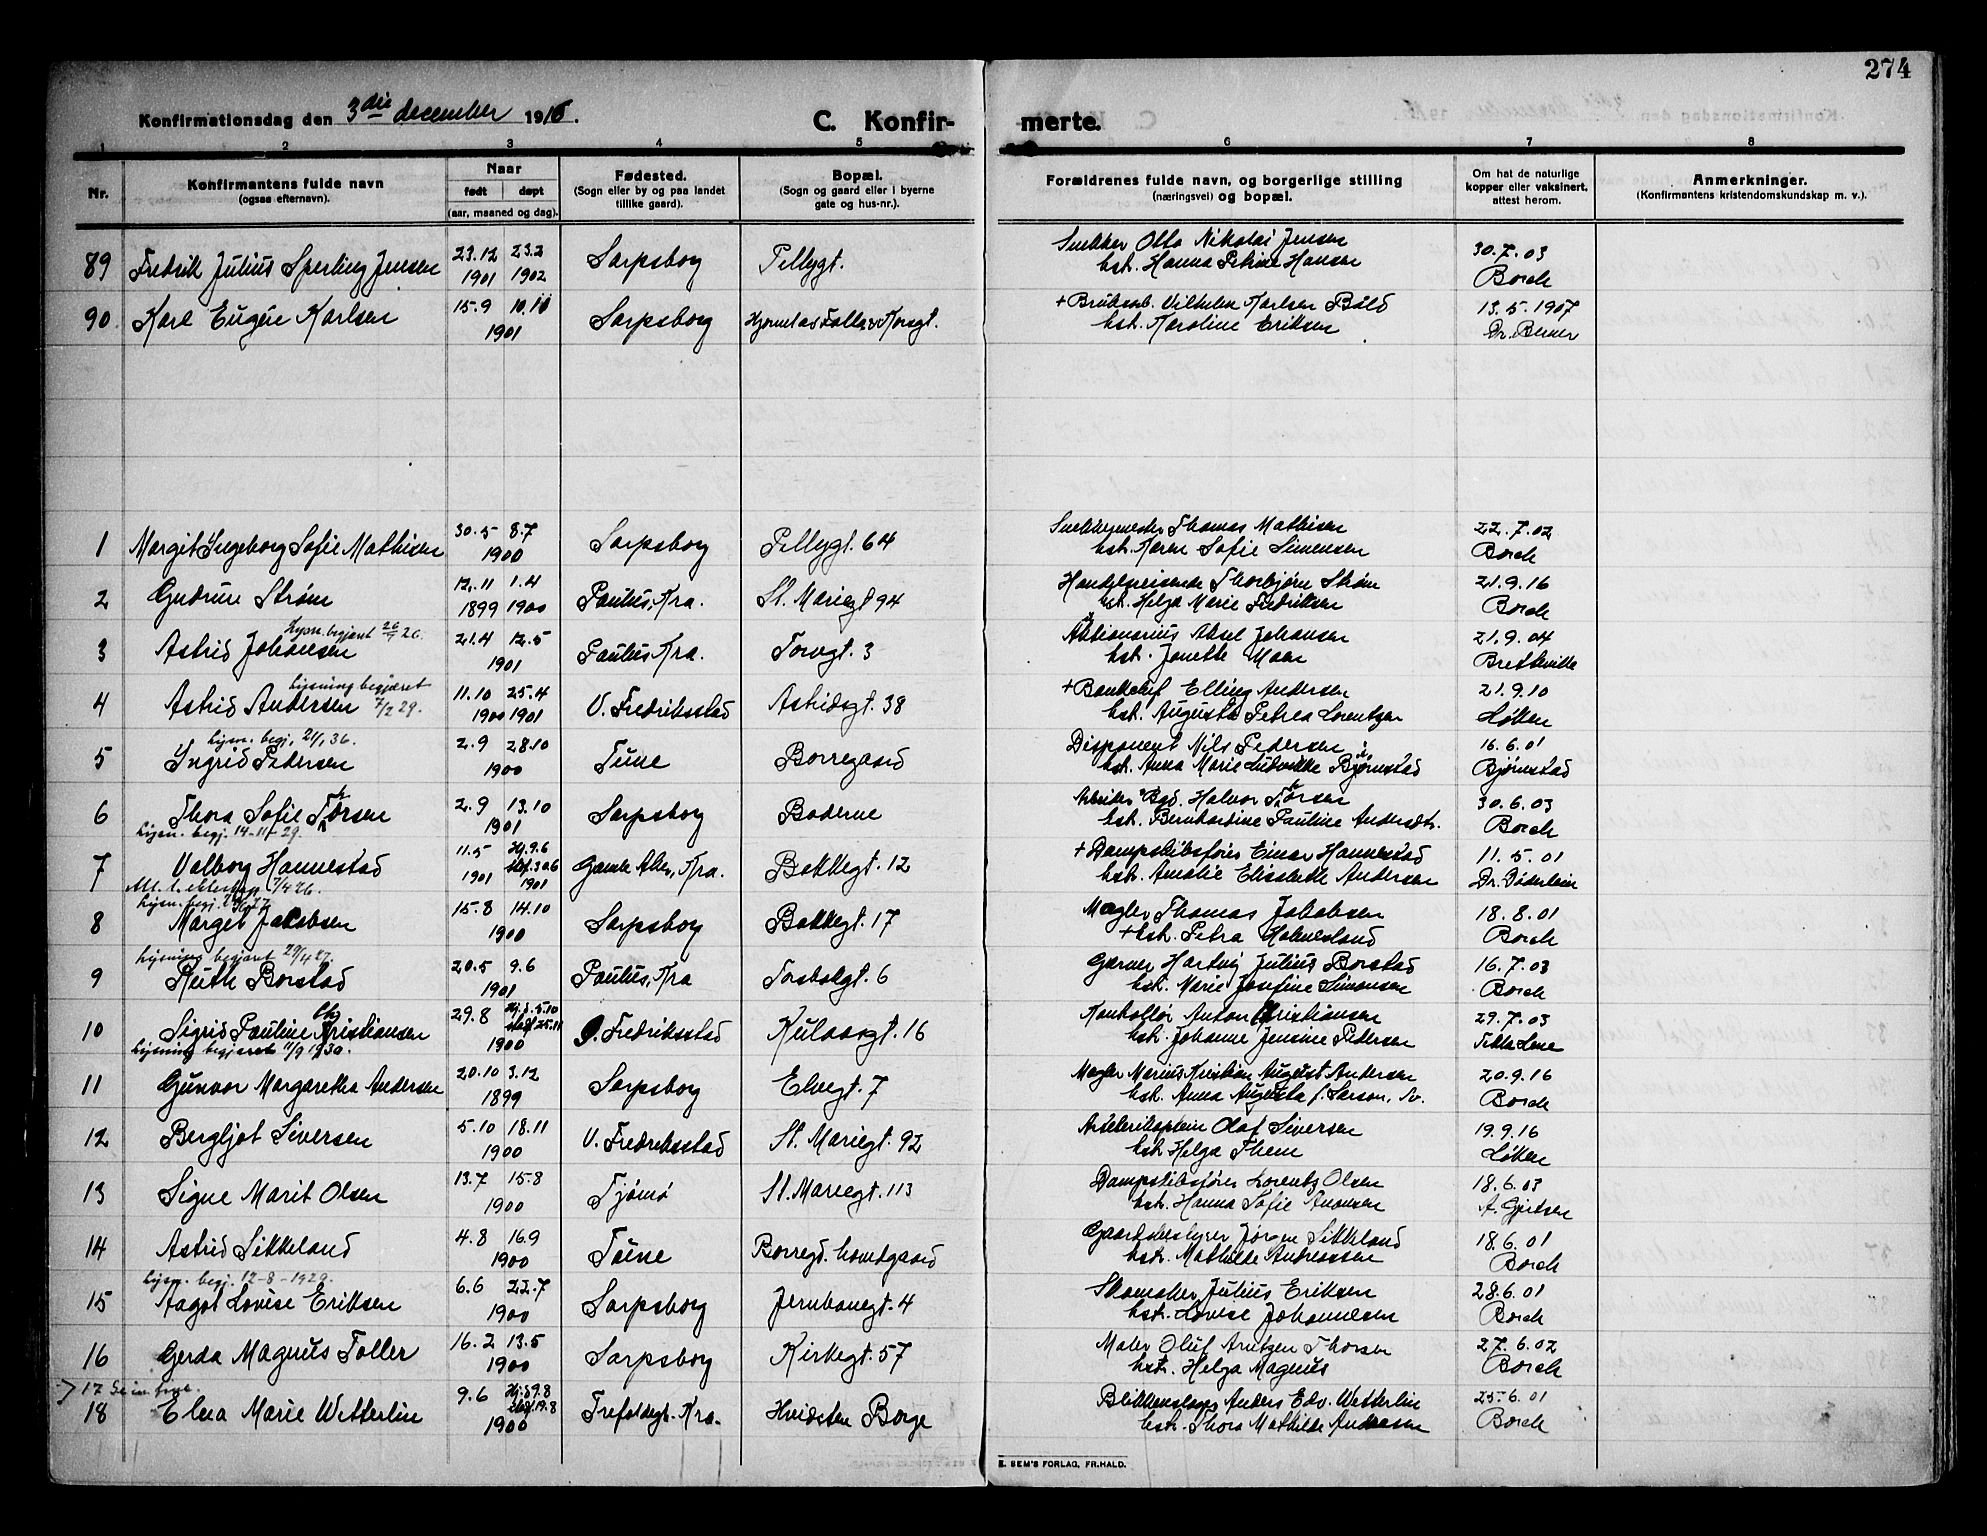 274
Konfirmationsdag den 3die december 1916.
C. Konfir- merte.
1 2 3 4 5 6 7 8
Nr.
Konfirmantens fulde navn
(ogsaa efternavn).
Naar
født døpt
(aar, maaned og dag).
Fødested.
(Sogn eller by og paa landet
tillike gaard).
Bopæl.
(Sogn og gaard eller i byerne
gate og hus-nr.).
Forældrenes fulde navn, og borgerlige stilling
(næringsvei) og bopæl.
Om hat de naturlige
kopper eller vaksinert,
attest herom.
Anmerkninger.
(Konfirmantens kristendomskundskap m. v.).
89 Fredrik Julius Sperling Jensen 23.12 1901 23.2 1902 Sarpsborg Pellygt. Snekker Otto Nikolai Jensen 30.7.03
hst. Hanna Petrine Hansen Borch
90. Karl Eugen Karlsen 15.9 10.11 1901 Sarpsborg Korsgt. + Vilhelm Karlsen 13.5.1907
hst. Karoline Eriksen Dr. Berner
1 Margit Ingeborg Sofie Mathisen 30.5 8.7 1900 Sarpsborg Pellygt. 64 Snekkermester Thomas Mathisen 22.7.02
hst. Karen Sofie Simensen Borch
2 Gudrun Strøm 12.11 1899 1.4 1900 Paulus, Kra. St. Mariegt 94 Handelsreisende Thorbjørn Strøm 21.9.16
hst. Helga Marie Fredriksen Borch
Lysn. begjæret 26/7 26.
3 Astrid Johansen 21.4 12.5 1901 Paulus Kra. Torvgt. 3 Aktuarius Aksel Johansen 21.9.04
hst. Janette Moen
Lysning begjæret 7/2 29.
4 Astrid Andersen 11.10 1900 25.4 1901 V. Fredriksstad Astridsgt. 38 + Elling Andersen 21.9.10
hst. Augusta Petrea Lorentzen Løken
Lysn. begj. 21/1 36.
5 Ingrid Pedersen 2.9 28.10 1900 Tune Borregaard Disponent Nils Pedersen 16.6.01
hst. Anna Marie Ludvikke Bjørnstad Bjørnstad
6 Thora Sofie Thorsen 2.9 13.10 1901 Sarpsborg Boderne Arbeider Bgd. Halvor Thorsen 30.6.03
hst. Bernhardine Pauline Andersdtr. Borch
Lysn. begj. 14-11-29.
7 Valborg Hannestad 11.5 1901 Hj.9.6 stdf. 30.6 1901 Gamle Aker, Kra. Bakkegt. 12 + Dampskibsfører Einar Hannestad 11.5.01
hst. Amalie Elisabeth Andersen Dr. Døderlein
8 Marget Jakobsen 15.8 14.10 1900 Sarpsborg Bakkegt. 17 Mægler Thomas Jakobsen 18.8.01
+ hst. Petra Holmesland Borch
Lysning begjæret 29/4 27.
9 Ruth Borstad 20.5 9.6 1901 Paulus, Kra Torsbekgt. 6 Garver Hartvig Julius Borstad 16.7.03
hst. Marie Josefine Simonsen Borch
10 Sigrid Pauline Christiansen 29.8 Hj.d. 5.10 stdf 25.11 1900 Ø. Fredriksstad Kulaasgt. 16 Kontrollør Anton Christiansen 29.7.03
hst. Johanne Jensine Pedersen
Lysning begjæret 11/9 1930.
11 Gunvor Margaretha Andersen 20.10 3.12 1899 Sarpsborg Elvegt. 7 Mægler Marius Kristian August Andersen 20.9.16
hst. Anna Augusta f. Larson, Borch
12 Bergljot Siversen 5.10 18.11 1900 V. Fredriksstad St. Mariegt. 92 Olaf Siversen 19.9.16
hst. Helga Them Løken
13 Signe Marit Olsen 13.7 15.8 1900 Tjømø St. Mariegt. 113 Dampskibsfører Lorentz Olsen 18.6.03
hst. Hanna Sofie A. Gjertsen
14 Astrid Sikkeland 4.8 16.9 1900 Tune Borregd. hovedgaard Gaardsbestyrer Jørgen Sikkeland 18.6.01
hst. Mathilde Andreassen Borch
Lysn. begj. 12-8-1929.
15 Aagot Lovise Eriksen 6.6 22.7 1900 Sarpsborg Jernbanegt. 4 Skomaker Julius Eriksen 28.6.01
hst. Lovise Johannesen Borch
16 Gerda Magnus Toller 16.2 13.5 1900 Sarpsborg Kirkegt. 57 Maler Oluf Arntzen Thorsen 27.6.02
hst. Helga Magnus Borch
17 Se
18 Elna Marie Wetterlin 9.6 Hj.d 9.8 stdf. 19.8 1900 Trefoldigh. Kra. Hvidsten Borge Blikkenslager Anders Edv. Wetterlin 25.6.01
hst. Thora Mathilde Andreassen Borch
E. SEM'S FORLAG, FR.HALD.